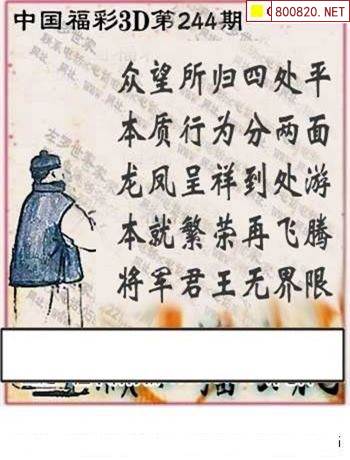 中国福彩3D第244期
800820.NET
众望所归四处平
本质行为分两面
龙凤呈祥到处游
本就繁荣再飞腾
将军君王无界限